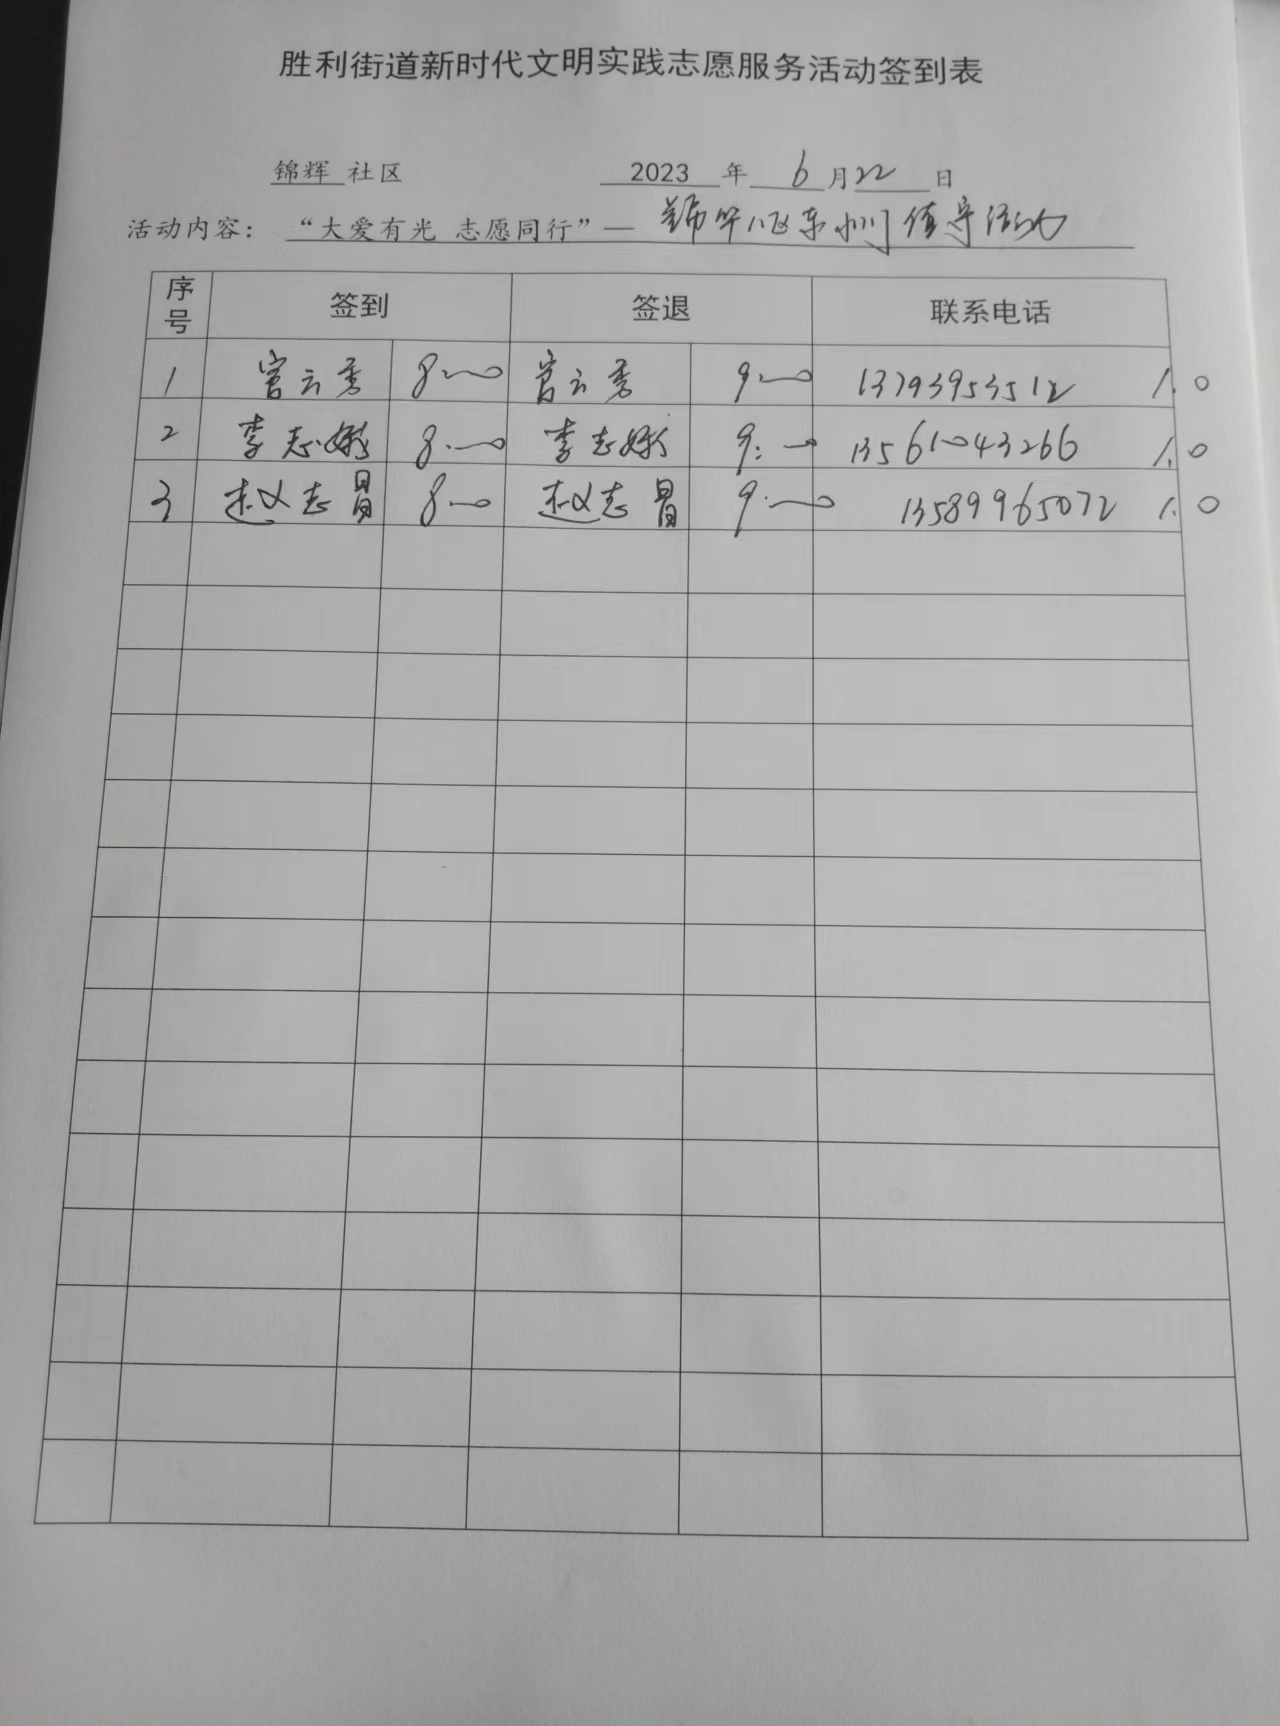 胜利街道新时代文明实践志愿服务活动签到表
锦辉 社区 2023 年 6 月 22 日
活动内容： “大爱有光 志愿同行”— 锦华八区东小门值守活动
序号 签到 签退 联系电话
1 官云秀 8:00 官云秀 9:00 13793953512 1.0
2 李志娥 8:00 李志娥 9:00 13561043266 1.0
3 赵义志 8:00 赵义志 9:00 13589965072 1.0